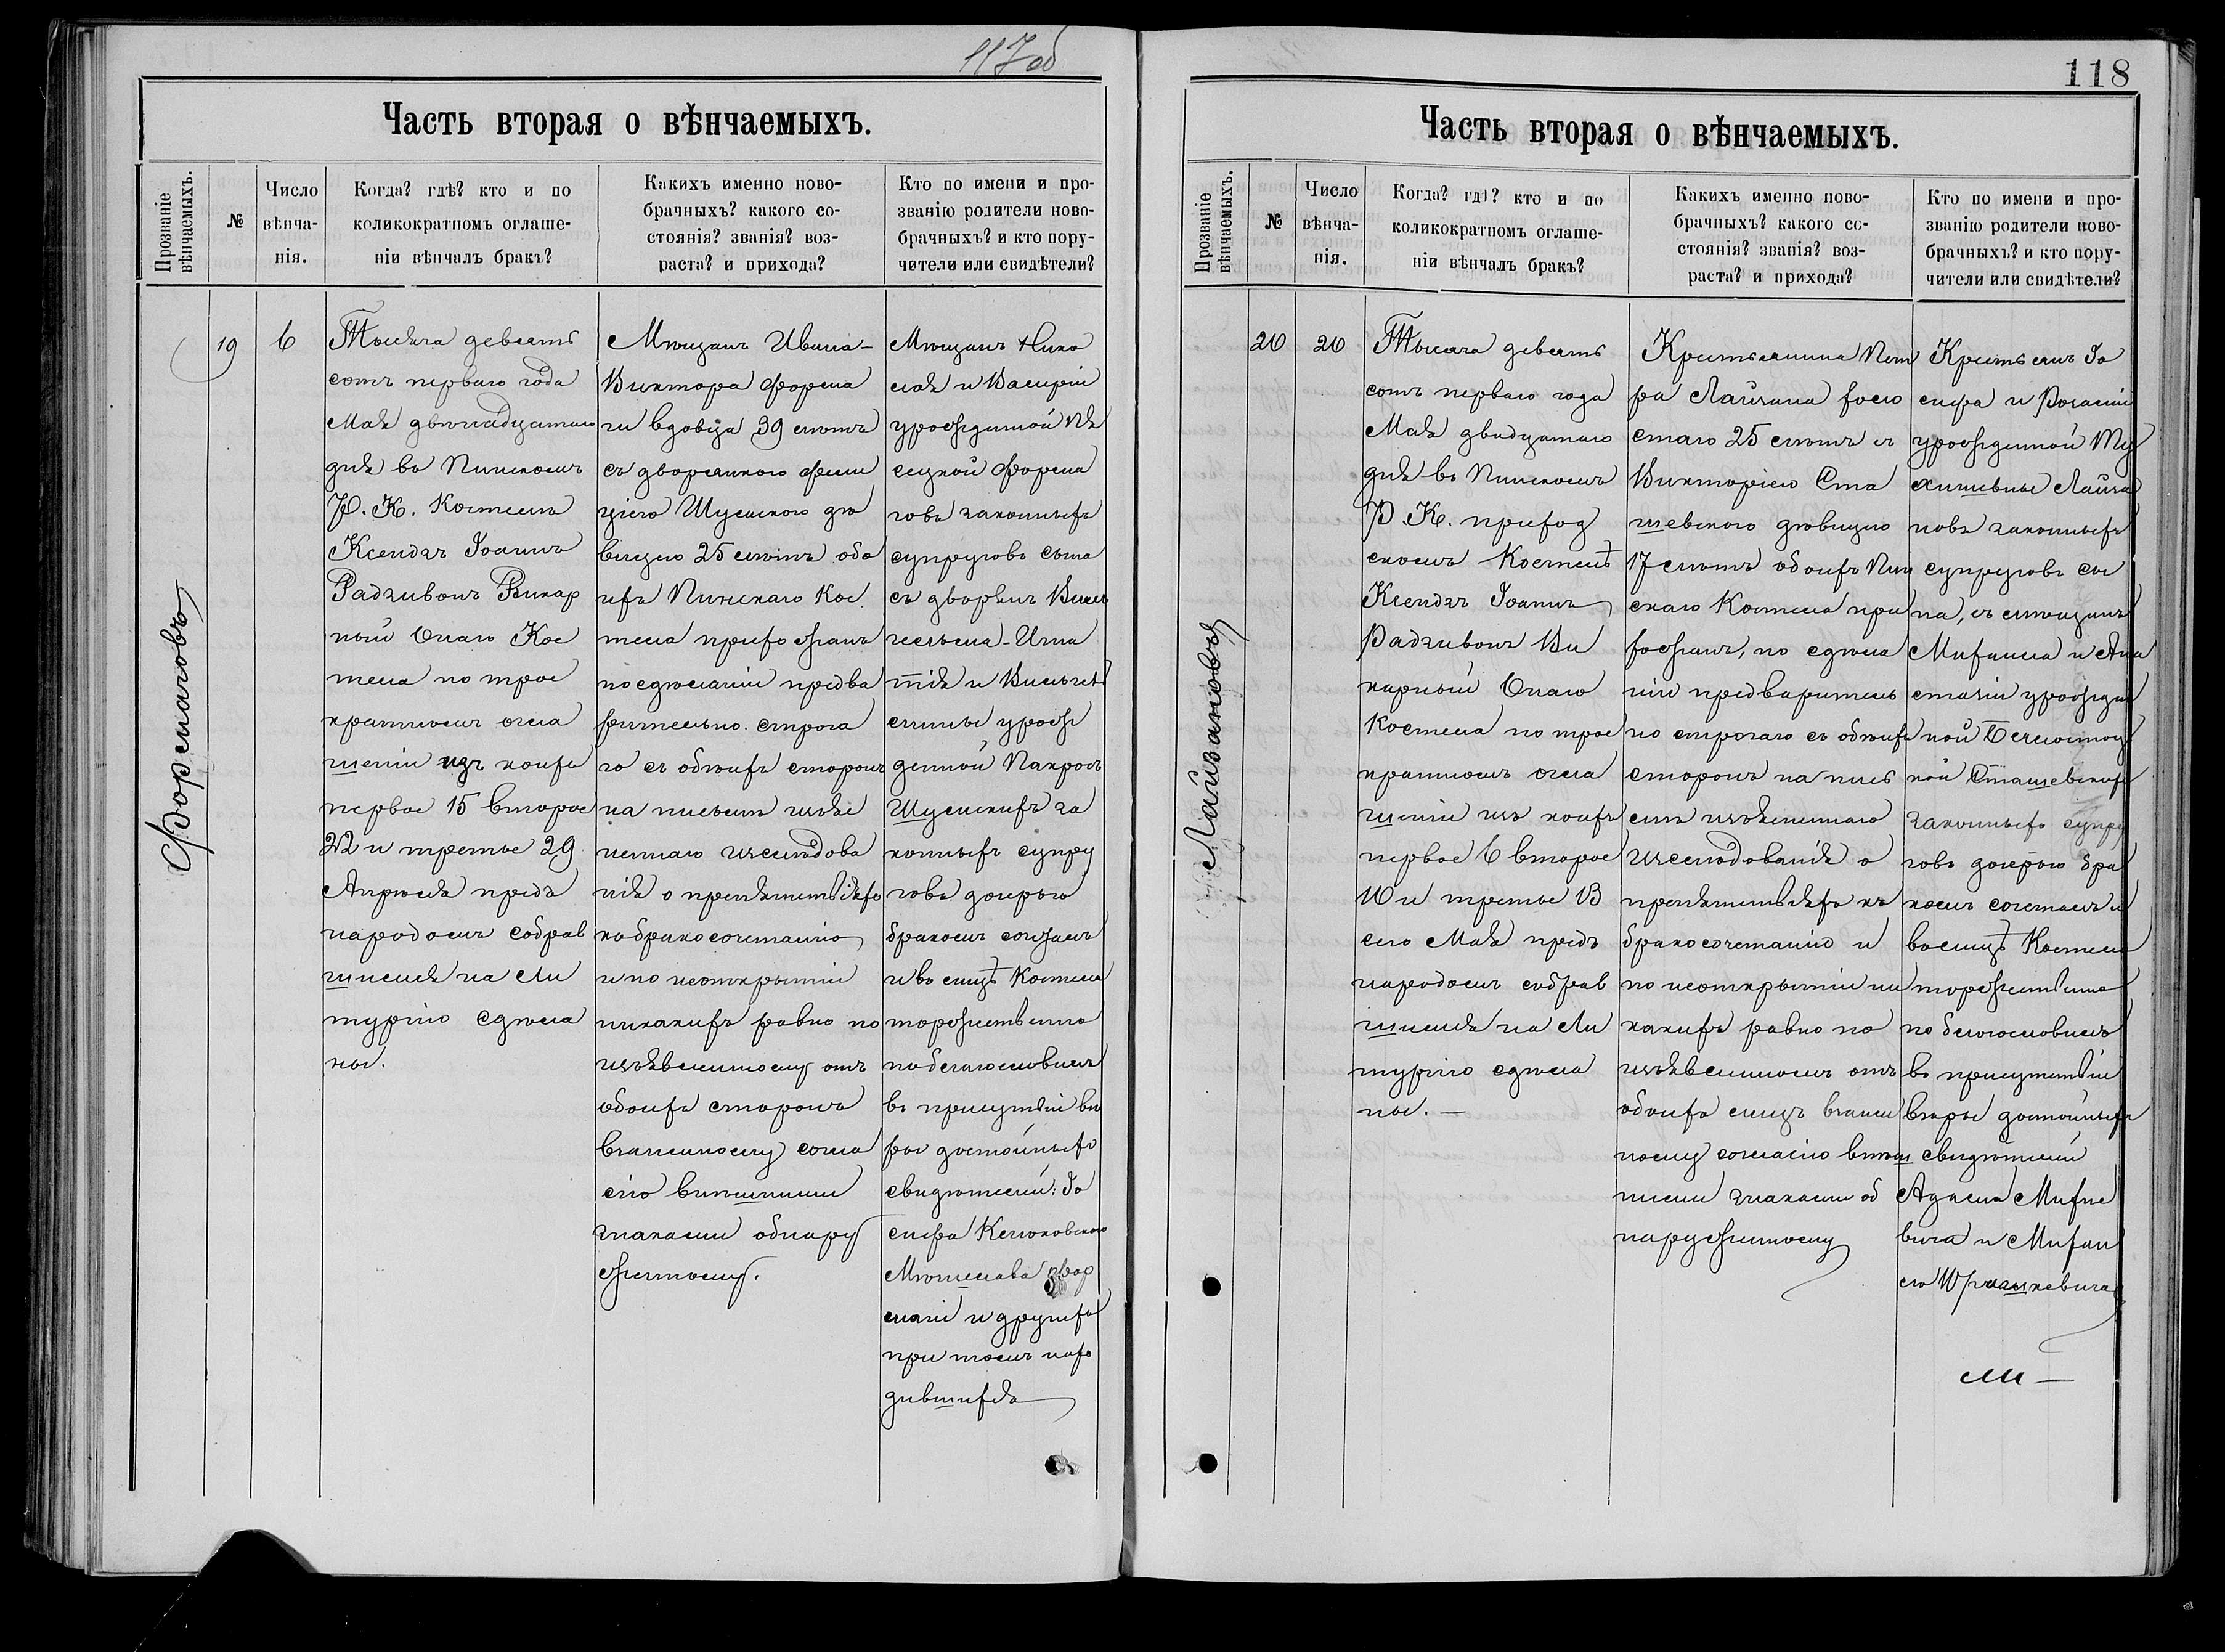 117об
Часть вторая о вѣнчаемыхъ.
Прозваніе вѣнчаемыхъ.
№
Число вѣнча-
нія.
Когда? гдѣ? кто и по
коликократномъ оглаше-
ніи вѣнчалъ бракъ?
Какихъ именно ново-
брачныхъ? какого со-
стоянія? званія? воз-
раста? и прихода?
Кто по имени и про-
званію родители ново-
брачныхъ? и кто пору-
чители или свидѣтели?
19
6
Тысяча девять
сотъ перваго года
Мая двѣнадцатаго
дня въ Пинскомъ
Р. К. Костелѣ
Ксендзъ Іоаннъ
Радзивонъ Викар
ный Онаго Кос
тела по трое
кратномъ огла
шеніи изъ коихъ
первое 15 второе
22 и третье 29
Апрѣля предъ
народомъ собрав
шимся на Ли
тургію сдѣла
ны.
Мѣщанъ Ивана-
Виктора Форма
ги вдовца 39 лѣтъ
съ дворянкою Фели
ціею Шумскою дѣ
вицею 25 лѣтъ обо
ихъ Пинскаго Кос
тела прихожанъ
по сдѣланіи предва
рительно строга
го съ обоихъ сторонъ
на письмѣ изъяс
неннаго изслѣдова
нія о препятствіяхъ
къ бракосочетанію
и по неоткрытіи
никакихъ равно по
изъявленному отъ
обоихъ сторонъ
взаимному согла
сію внѣшними
знаками обнару
женному.
Мѣщанъ Нико
лая и Валеріи
урожденной
Формаговъ законныхъ
супруговъ сына
съ дворянъ
Игна
тія и
урож
денной
Шумскихъ за
конныхъ супру
говъ дочерью
бракомъ сочеталъ
и въ лицѣ Костела
торжественно
поблагословилъ
въ присутствіи вѣ
ры достойныхъ
свидѣтелей: Іо
сифа
и другихъ
при томъ нахо
дившихся
Формаговъ
118
Часть вторая о вѣнчаемыхъ.
Прозваніе вѣнчаемыхъ.
№
Число вѣнча-
нія.
Когда? гдѣ? кто и по
коликократномъ оглаше-
ніи вѣнчалъ бракъ?
Какихъ именно ново-
брачныхъ? какого со-
стоянія? званія? воз-
раста? и прихода?
Кто по имени и про-
званію родители ново-
брачныхъ? и кто пору-
чители или свидѣтели?
20
20
Тысяча девять
сотъ перваго года
Мая двадцатаго
дня въ Пинскомъ
Р. К. приход
скомъ Костелѣ
Ксендзъ Іоаннъ
Радзивонъ Ви
карный Онаго
Костела по трое
кратномъ огла
шеніи изъ коихъ
первое 6 второе
10 и третье 13
сего Мая предъ
народомъ собрав
шимся на Ли
тургію сдѣла
ны. —
Крестьянина Пет
ра Лайзана холо
стаго 25 лѣтъ съ
Викторіею Ста
шевскою дѣвицею
17 лѣтъ обоихъ Пин
скаго Костела при
хожанъ, по сдѣла
ніи предваритель
но строгаго съ обоихъ
сторонъ на пись
мѣ изъясненнаго
изслѣдованія о
препятствіяхъ къ
бракосочетанію и
по неоткрытіи ни
какихъ равно по
изъявленномъ отъ
обоихъ лицъ взаим
ному согласію внѣш
ними знаками об
наруженному
Крестьянъ Іо
сифа и Розаліи
урожденной
Лайза
новъ законныхъ
супруговъ сы
на, съ мѣщанъ
Михаила и Ана
стазіи урожден
ной
Сташевскихъ
законныхъ супру
говъ дочерью бра
комъ сочеталъ и
въ лицѣ Костела
торжественно
поблагословилъ
въ присутствіи
вѣры достойныхъ
свидѣтелей
Адама Михне
вича и Михаи
ла
Лайзановъ